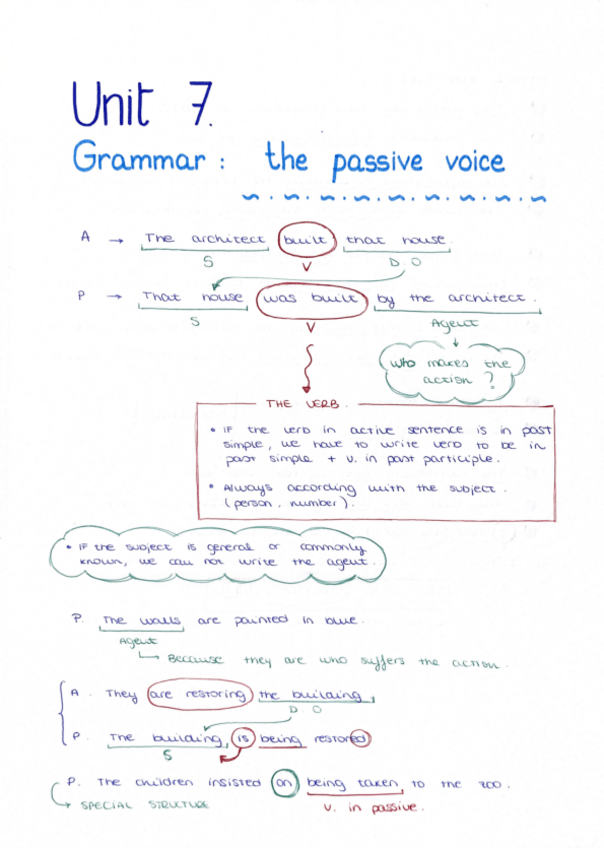 Unit 7.
Grammar: the passive voice
A → The architect built that house.
S V D.O
P → That house was built by the architect.
S V Agent
who makes the action ?
THE VERB.
• IF the verb in active sentence is in past
simple, we have to write verb to be in
past simple + v. in past participle.
• Always according with the subject.
(person, number).
• IF the subject is general or commonly
known, we can not write the agent.
P. The walls are painted in blue.
Agent
Because they are who suffers the action.
A. They are restoring the building,
D.O
P. The building, is being restored
S
P. The children insisted on being taken to the zoo.
SPECIAL STRUCTURE v. in passive.